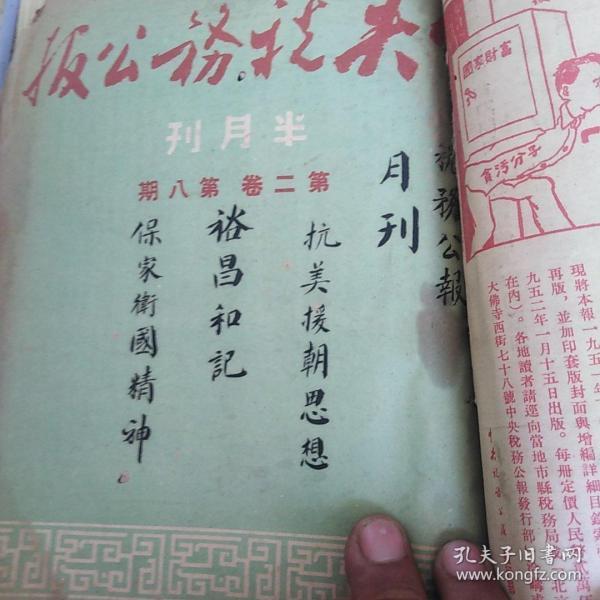 央税務公報
半月刊
第二卷 第八期
税務公報
月刊
抗美援朝思想
裕昌和記
保家衛國精神。
國家財富
貪污分子
現將本報一九五一年
再版，並加印套版封面與增編詳細目錄索
九五二年一月十五日出版。每冊定價人民
在內）。各地讀者請逕向當地市縣稅務局
大佛寺西街七十八號中央稅務公報發行部
孔夫子旧书网
www.kongfz.com